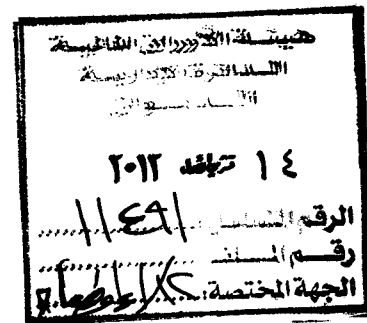 هيئة الأوراق المالية
الدائرة الإدارية
الديوان
١٤ ٢٠١٢
الرقم المتسلسل: ١١٤٩١
رقم الملف
الجهة المختصة: